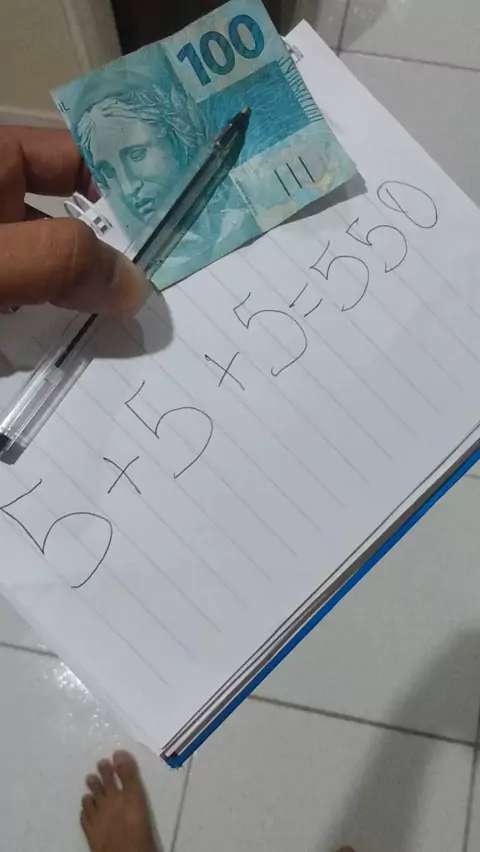 100
5+5+5=550